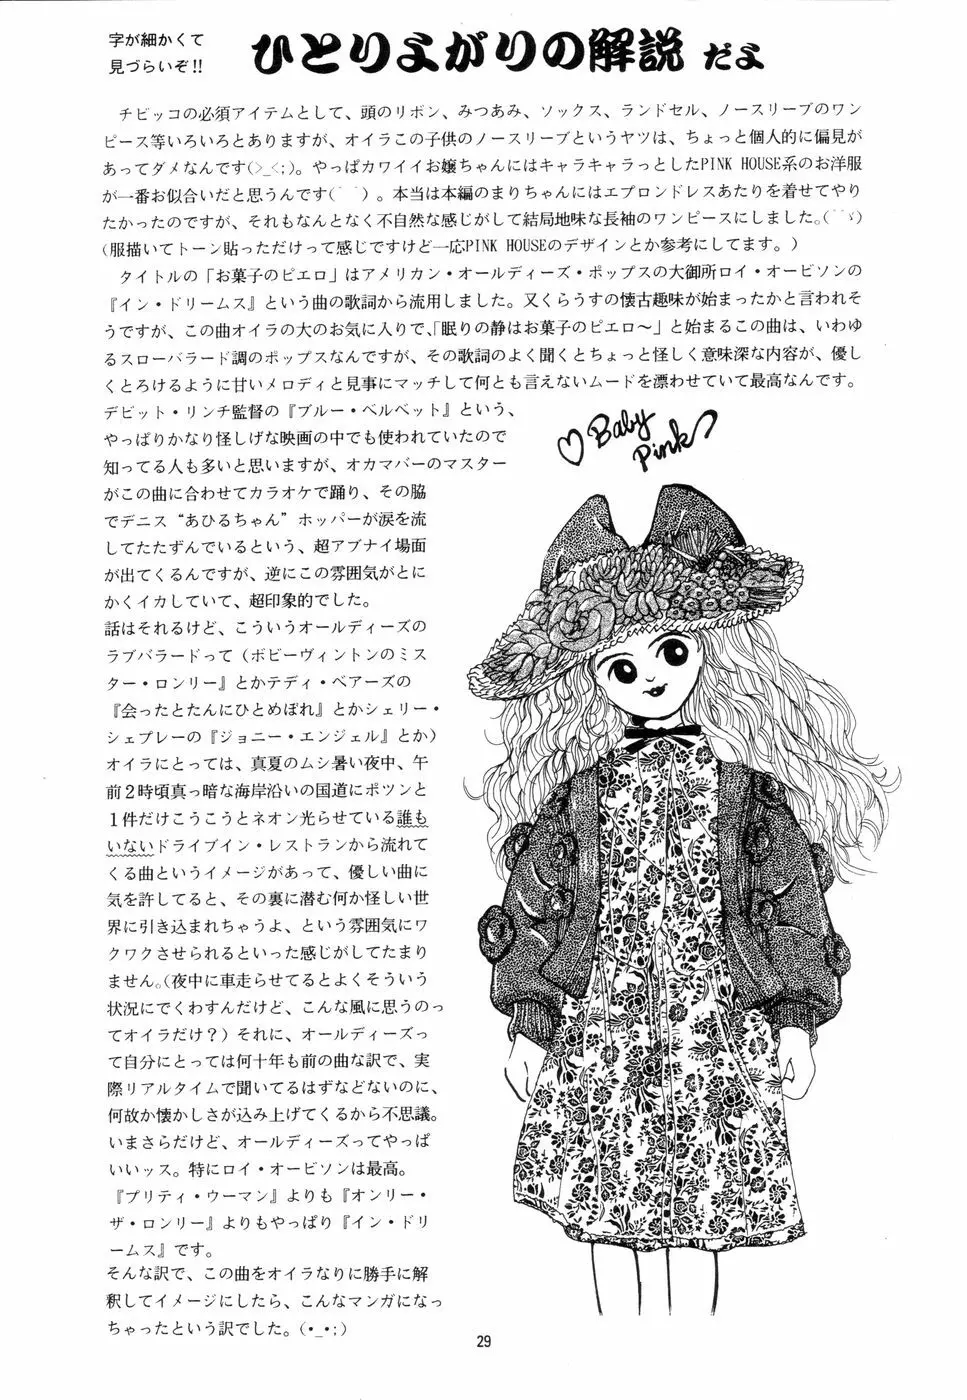 字が細かくて
見づらいぞ!!
ひとりよがりの解説 だよ
チビッコの必須アイテムとして、頭のリボン、みつあみ、ソックス、ランドセル、ノースリーブのワン
ピース等いろいろとありますが、オイラこの子供のノースリーブというヤツは、ちょっと個人的に偏見が
あってダメなんです(>_<;)。やっぱカワイイお嬢ちゃんにはキャラキャラっとしたPINK HOUSE系のお洋服
が一番お似合いだと思うんです(¯ ¯)。本当は本編のまりちゃんにはエプロンドレスあたりを着せてやり
たかったのですが、それもなんとなく不自然な感じがして結局地味な長袖のワンピースにしました。(¯ ¯ゞ)
(服描いてトーン貼っただけって感じですけど一応PINK HOUSEのデザインとか参考にしてます。)
タイトルの「お菓子のピエロ」はアメリカン・オールディーズ・ポップスの大御所ロイ・オービソンの
『イン・ドリームス』という曲の歌詞から流用しました。又くらうすの懐古趣味が始まったかと言われそ
うですが、この曲オイラの大のお気に入りで、「眠りの静はお菓子のピエロ〜」と始まるこの曲は、いわゆ
るスローバラード調のポップスなんですが、その歌詞のよく聞くとちょっと怪しく意味深な内容が、優し
くとろけるように甘いメロディと見事にマッチして何とも言えないムードを漂わせていて最高なんです。
デビット・リンチ監督の『ブルー・ベルベット』という、
やっぱりかなり怪しげな映画の中でも使われていたので
知ってる人も多いと思いますが、オカマバーのマスター
がこの曲に合わせてカラオケで踊り、その脇
でデニス“あひるちゃん”ホッパーが涙を流
してたたずんでいるという、超アブナイ場面
が出てくるんですが、逆にこの雰囲気がとに
かくイカしていて、超印象的でした。
話はそれるけど、こういうオールディーズの
ラブバラードって(ボビーヴィントンのミス
ター・ロンリー』とかテディ・ベアーズの
『会ったとたんにひとめぼれ』とかシェリー・
シェブレーの『ジョニー・エンジェル』とか)
オイラにとっては、真夏のムシ暑い夜中、午
前2時頃真っ暗な海岸沿いの国道にポツンと
1件だけこうこうとネオン光らせている誰も
いないドライブイン・レストランから流れて
くる曲というイメージがあって、優しい曲に
気を許してると、その裏に潜む何か怪しい世
界に引き込まれちゃうよ、という雰囲気にワ
クワクさせられるといった感じがしてたまり
ません。(夜中に車走らせてるとよくそういう
状況にでくわすんだけど、こんな風に思うのっ
てオイラだけ?)それに、オールディーズっ
て自分にとっては何十年も前の曲な訳で、実
際リアルタイムで聞いてるはずなどないのに、
何故か懐かしさが込み上げてくるから不思議。
いまさらだけど、オールディーズってやっぱ
いいッス。特にロイ・オービソンは最高。
『プリティ・ウーマン』よりも『オンリー・
ザ・ロンリー』よりもやっぱり『イン・ドリ
ームス』です。
そんな訳で、この曲をオイラなりに勝手に解
釈してイメージにしたら、こんなマンガになっ
ちゃったという訳でした。(・_・;)
♡Baby
Pink
29